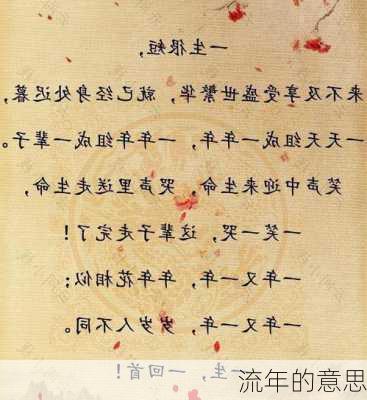 一生很短，
来不及享受盛世繁华，就已经身处迟暮，
一天天组成一年年，一年年组成一辈子。
笑声中迎来生命，哭声里送走生命，
一笑一哭，这辈子走完了！
一年又一年，年年花相似；
一年又一年，岁岁人不同。
一生，一回首！
流年的意思